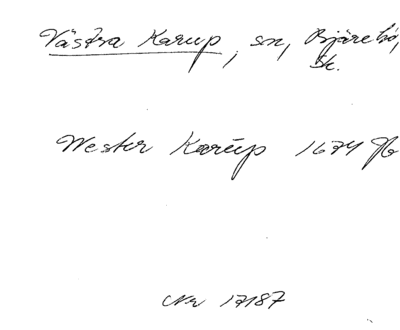 Västra Karup, sn, Bjärehd,
Sk.
Wester Karŭp 1674 Jb
Nr 17187